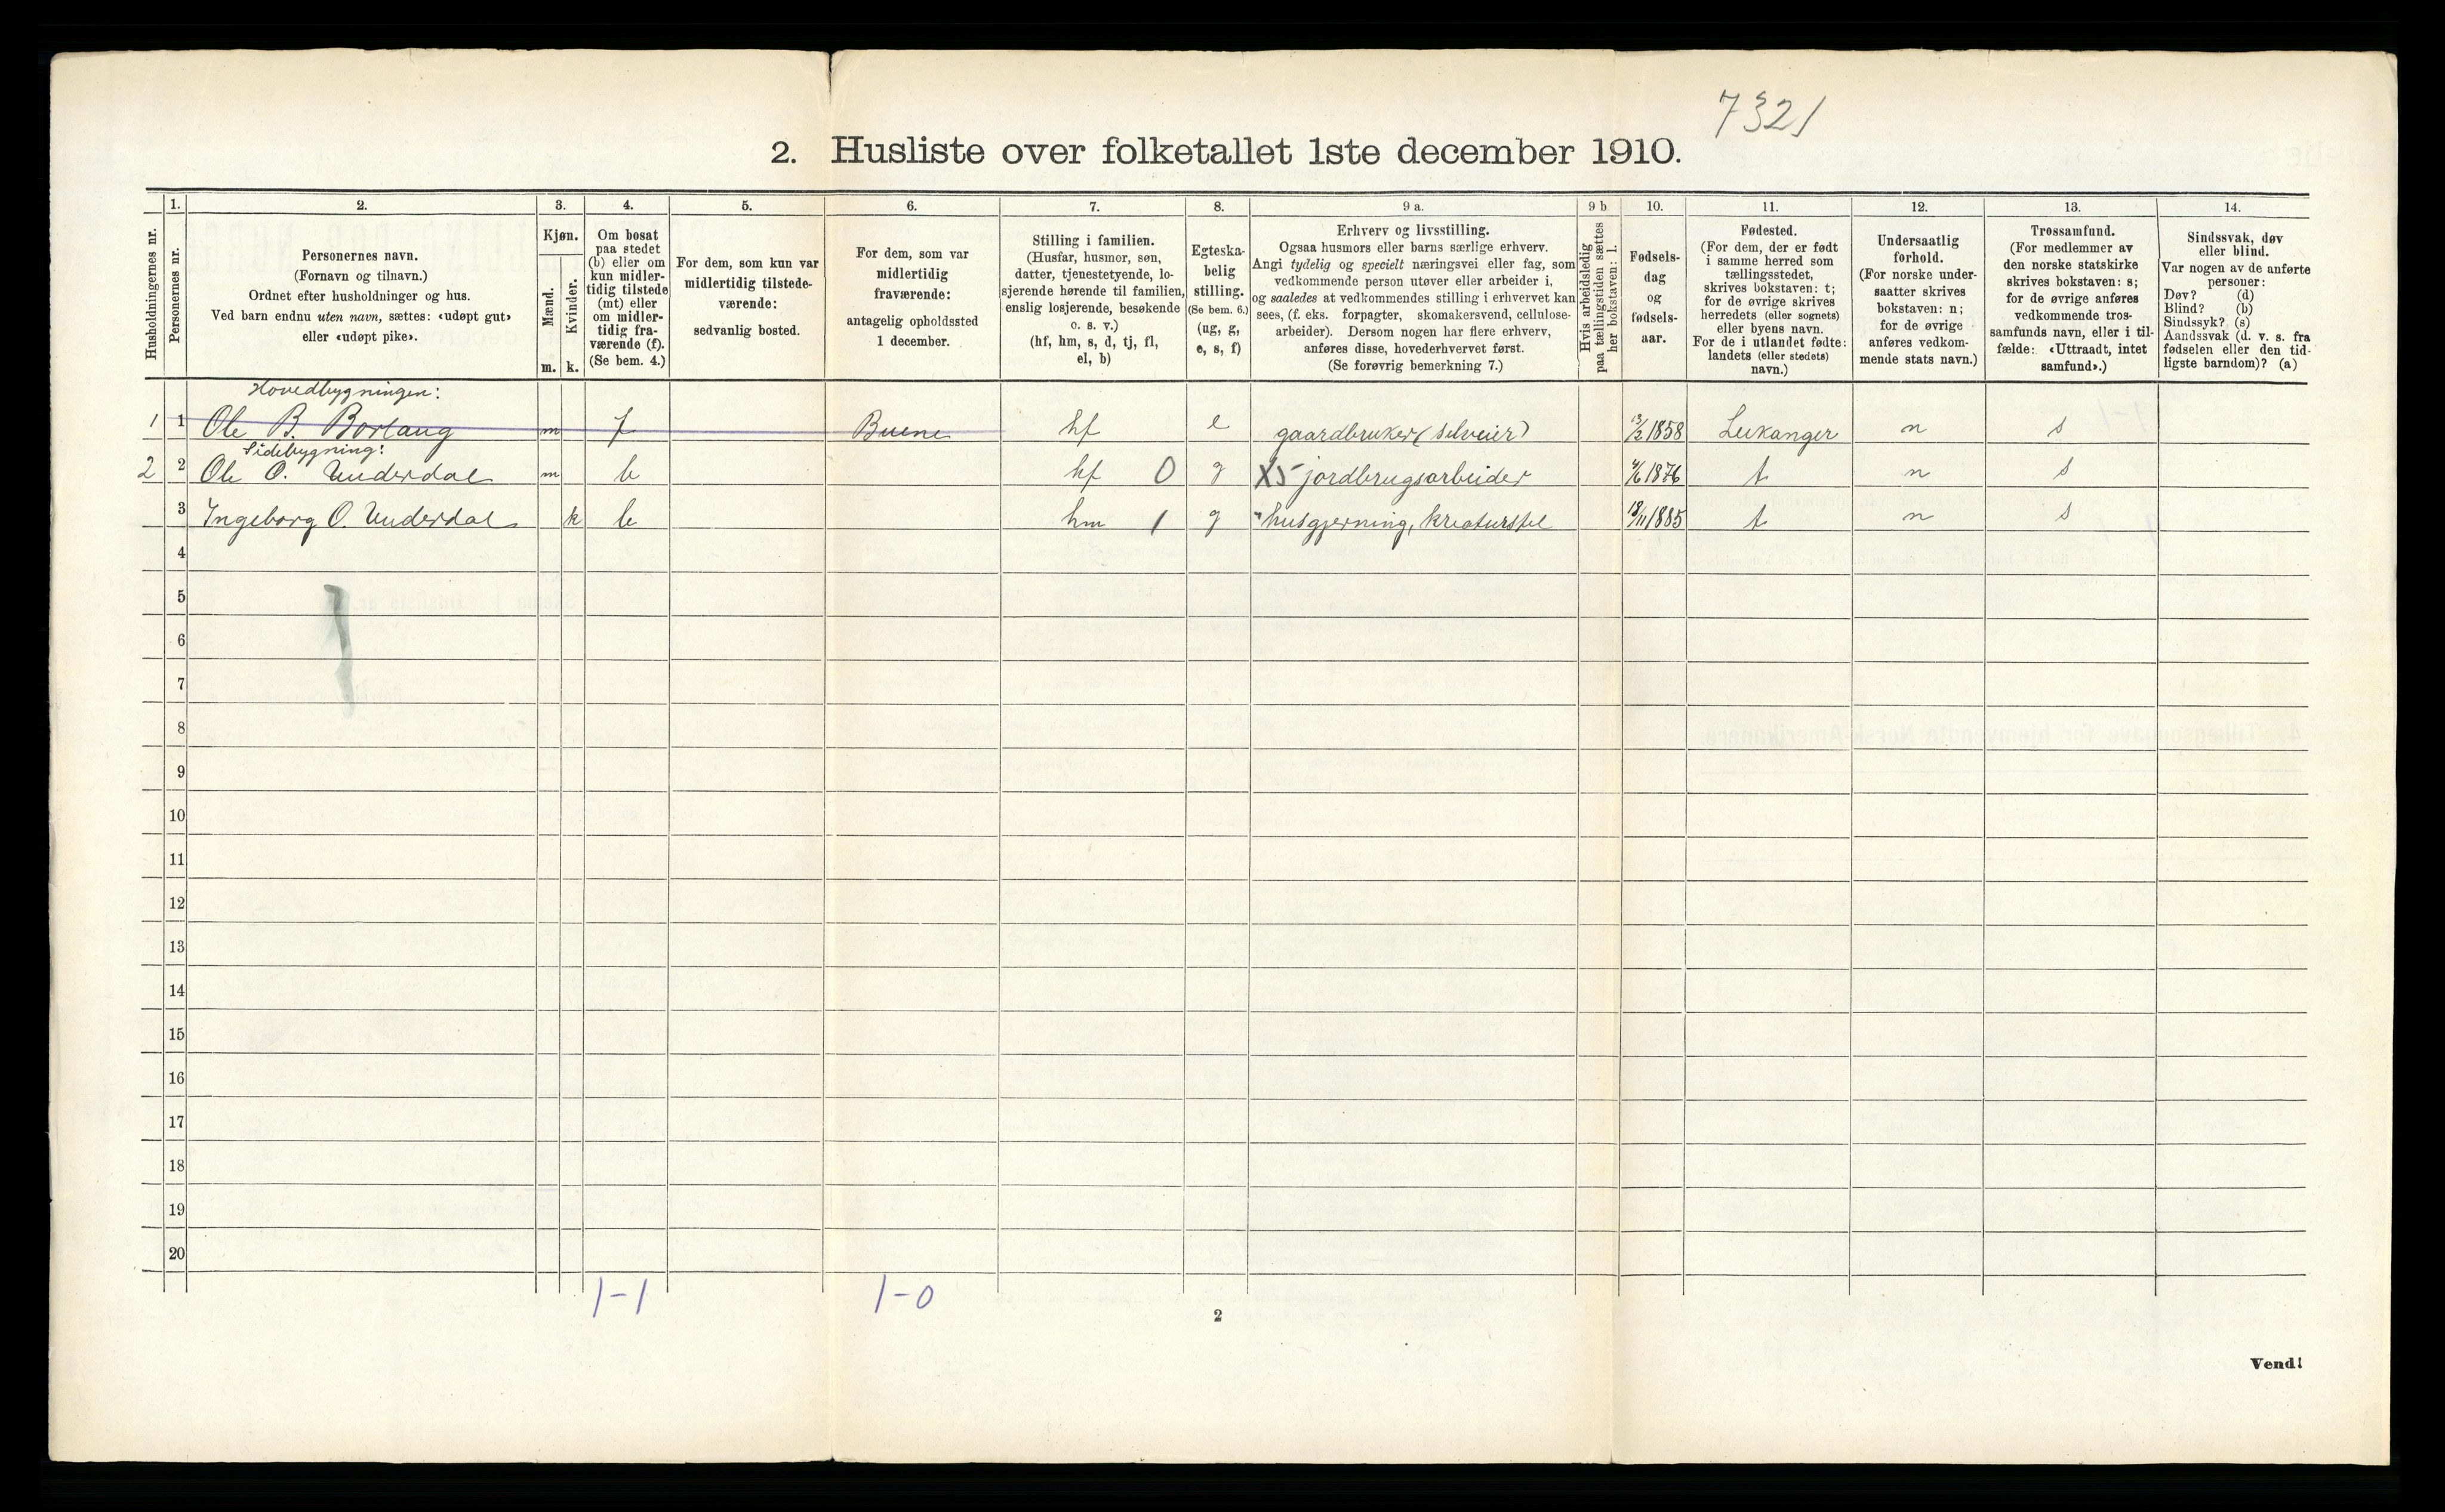 7321
2. Husliste over folketallet 1ste december 1910.
Husholdningernes nr.
1.
Personernes nr.
2.
Personernes navn.
(Fornavn og tilnavn.)
Ordnet efter husholdninger og hus.
Ved barn endnu uten navn, sættes: «udøpt gut»
eller «udøpt pike».
3.
Kjøn.
Mænd.
Kvinder.
m. k.
4.
Om bosat
paa stedet
(b) eller om
kun midler-
tidig tilstede
(mt) eller
om midler-
tidig fra-
værende (f).
(Se bem. 4.)
5.
For dem, som kun var
midlertidig tilstede-
værende:
sedvanlig bosted.
6.
For dem, som var
midlertidig
fraværende:
antagelig opholdssted
1 december.
7.
Stilling i familien.
(Husfar, husmor, søn,
datter, tjenestetyende, lo-
sjerende hørende til familien,
enslig losjerende, besøkende
o. s. v.)
(hf, hm, s, d, tj, fl,
el, b)
8.
Egteska-
belig
stilling.
(Se bem. 6.)
(ug, g,
e, s, f)
9 a.
Erhverv og livsstilling.
Ogsaa husmors eller barns særlige erhverv.
Angi tydelig og specielt næringsvei eller fag, som
vedkommende person utøver eller arbeider i,
og saaledes at vedkommendes stilling i erhvervet kan
sees, (f. eks. forpagter, skomakersvend, cellulose-
arbeider). Dersom nogen har flere erhverv,
anføres disse, hovederhvervet først.
(Se forøvrig bemerkning 7.)
9 b
Hvis arbeidsledig
paa tællingstiden sættes
her bokstaven: l.
10.
Fødsels-
dag
og
fødsels-
aar.
11.
Fødested.
(For dem, der er født
i samme herred som
tællingsstedet,
skrives bokstaven: t;
for de øvrige skrives
herredets (eller sognets)
eller byens navn.
For de i utlandet fødte:
landets (eller stedets)
navn.)
12.
Undersaatlig
forhold.
(For norske under-
saatter skrives
bokstaven: n;
for de øvrige
anføres vedkom-
mende stats navn.)
13.
Trossamfund.
(For medlemmer av
den norske statskirke
skrives bokstaven: s;
for de øvrige anføres
vedkommende tros-
samfunds navn, eller i til-
fælde: «Uttraadt, intet
samfund».)
14.
Sindssvak, døv
eller blind.
Var nogen av de anførte
personer:
Døv? (d)
Blind? (b)
Sindssyk? (s)
Aandssvak (d. v. s. fra
fødselen eller den tid-
ligste barndom)? (a)
Hovedbygningen:
1 1 Ole B. Borlaug m f Buene hf e gaardbruker (selveier) 13/2 1858 Leikanger n s
Sidebygning:
2 2 Ole O. Underdal m b hf 0 g X5 jordbrugsarbeider 4/6 1876 t n s
3 Ingeborg O. Underdal k b hm 1 g " husgjerning, kreaturstel 18/11 1885 t n s
4
5
6
7
8
9
10
11
12
13
14
15
16
17
18
19
20
1-1 1-0
2
Vend!